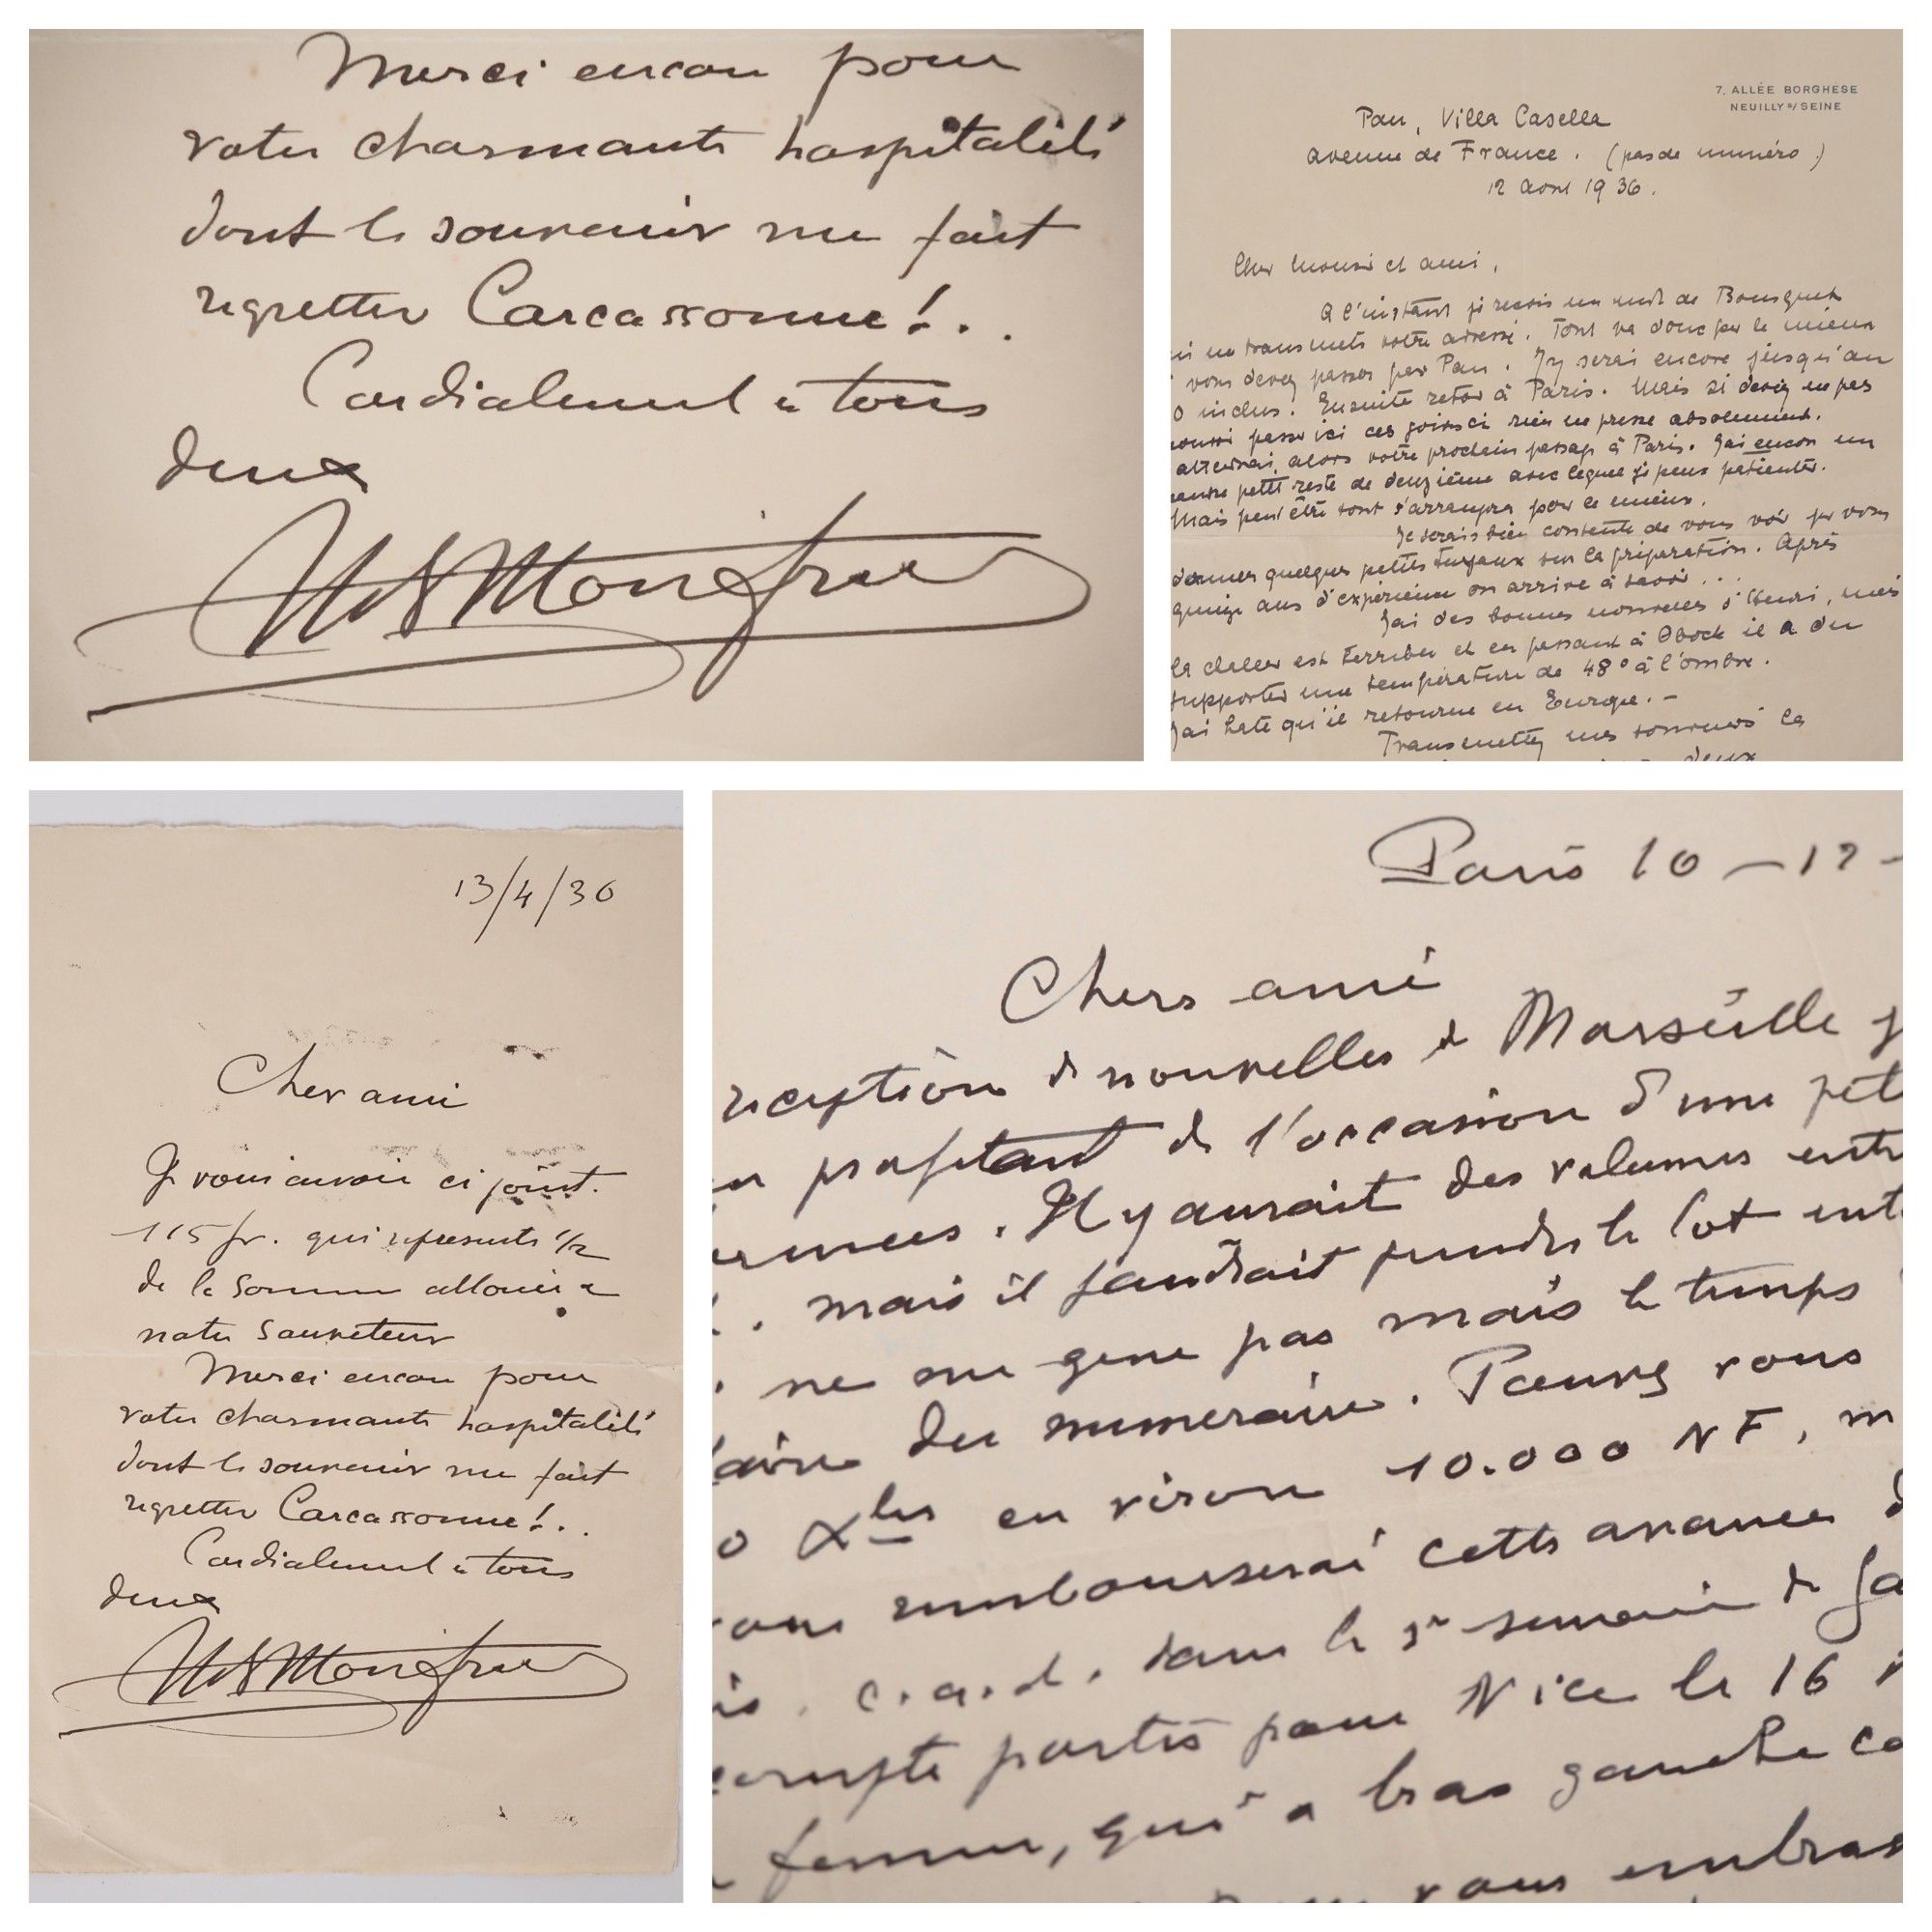 Merci encore pour
votre charmante hospitalité
dont le souvenir me fait
regretter Carcassonne !..
Cordialement à tous
deux
Hd Monfreid
7, ALLÉE BORGHÈSE
NEUILLY S/SEINE
Pau, Villa Casella
avenue de France. (pas de numéro)
12 aout 1936.
Cher Monsieur et ami,
A l'instant je reçois un mot de Bousquet
me transmets votre adresse. Tout va donc pour le mieux
vous devez passer par Pau. J'y serai encore jusqu'au
0 inclus. Ensuite retour à Paris. Mais si devez ne pas
passer ici ces jours ci rien ne presse absolument.
attendrai, alors votre prochain passage à Paris. J'ai encore un
petit reste de deuxième avec lequel je peux patienter.
Mais peut être tout s'arrangera pour le mieux.
Je serais bien contente de vous voir pr vous
donner quelques petits tuyaux sur la préparation. Après
quinze ans d'expérience on arrive à savoir...
J'ai des bonnes nouvelles d'Henri, mais
la chaleur est terrible et en passant à Obock il a du
supporter une température de 48° à l'ombre.
J'ai hate qu'il retourne en Europe. -
Transmettez mes
deux
13/4/36
Cher ami
Je vous envoie ci joint.
115 fr. qui représente 1/2
de la somme allouée à
notre sauveteur
Merci encore pour
votre charmante hospitalité
dont le souvenir me fait
regretter Carcassonne !..
Cordialement à tous
deux
Hd Monfreid
Paris 10 - 12 -
Chers amis
réception de nouvelles de Marseille j
en profitant de l'occasion d'une peti
. Il y aurait des volumes entr
. mais il faudrait prendre le lot enti
ne me gene pas mais le temps
faire du numeraire. Pouvez vous
0 xles environ 10.000 NF, m
vous rembourserai cette avance d
is. c.a.d. dans la 1re semaine de Ja
compte partir pour Nice le 16
femme, qui a le bras gauche ca
vous embras